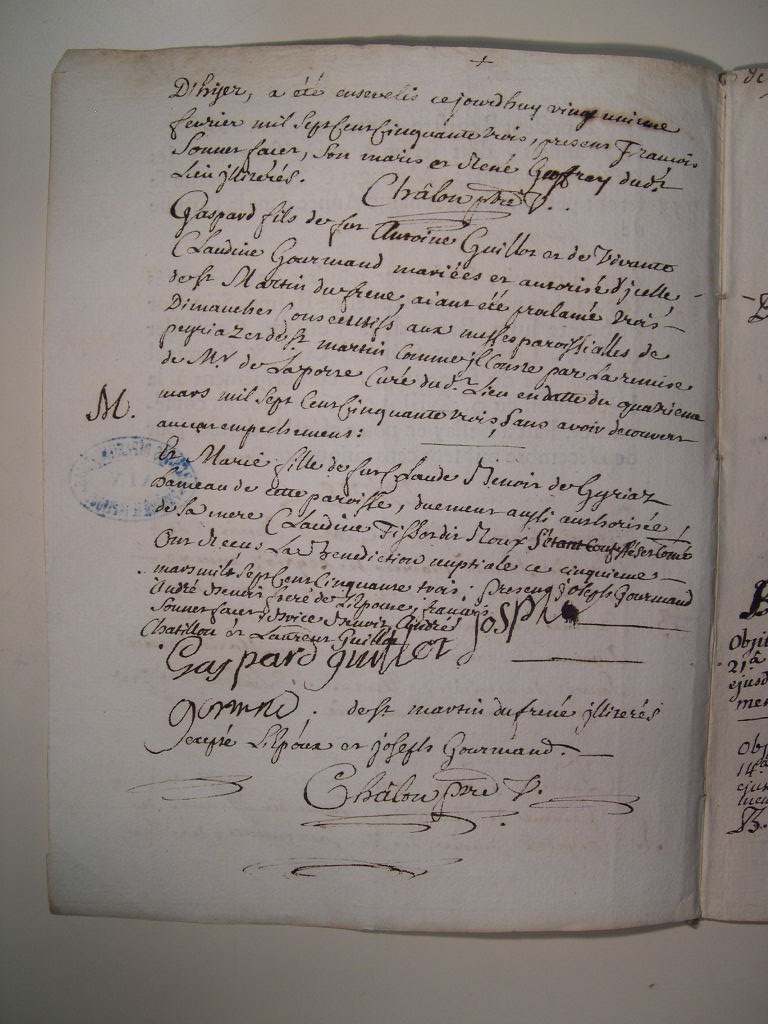 D'hyer, a été ensevelis cejourdhuy vingt unieme
fevrier mil Sept Cent Cinquante trois, present François
Sonner facer, Son maris et René Geoffray dudt
Lieu jlliterés.
Châlon ptre V.
Gaspard fils de fut Antoine Guillot et de Vivante
Claudine Gourmand mariées et autorisé d'jcelle
de st Martin du frene, aiant été proclamé trois
Dimanches Consecutifs aux messes paroissialles de
peyriaz et de st martin Comme jl Conste par La remise
de Mr. de Laporte Curé dudt. Lieu en datte du quatrieme
mars mil Sept Cent Cinquante trois, Sans avoir decouvert
aucun empechement:
M.
Et Marie fille de fut Claude Benoit de Gyriaz
hameau de cette paroisse, duement aussi authorisée
de sa mere Claudine Tissot dit Roux
Ont Receus La Benediction nuptiale ce cinquieme
mars mil Sept Cent Cinquante trois; present joseph Gourmand
André Benoit frere de L'Epouse, françois
Sonner facer, Benoit, André
Chatillon et Laurent Guillot
josph
Gaspard guillot
gormand. de st martin du frené jlliterés
Excepté L'Epoux et joseph Gourmand.
Châlon ptre V.